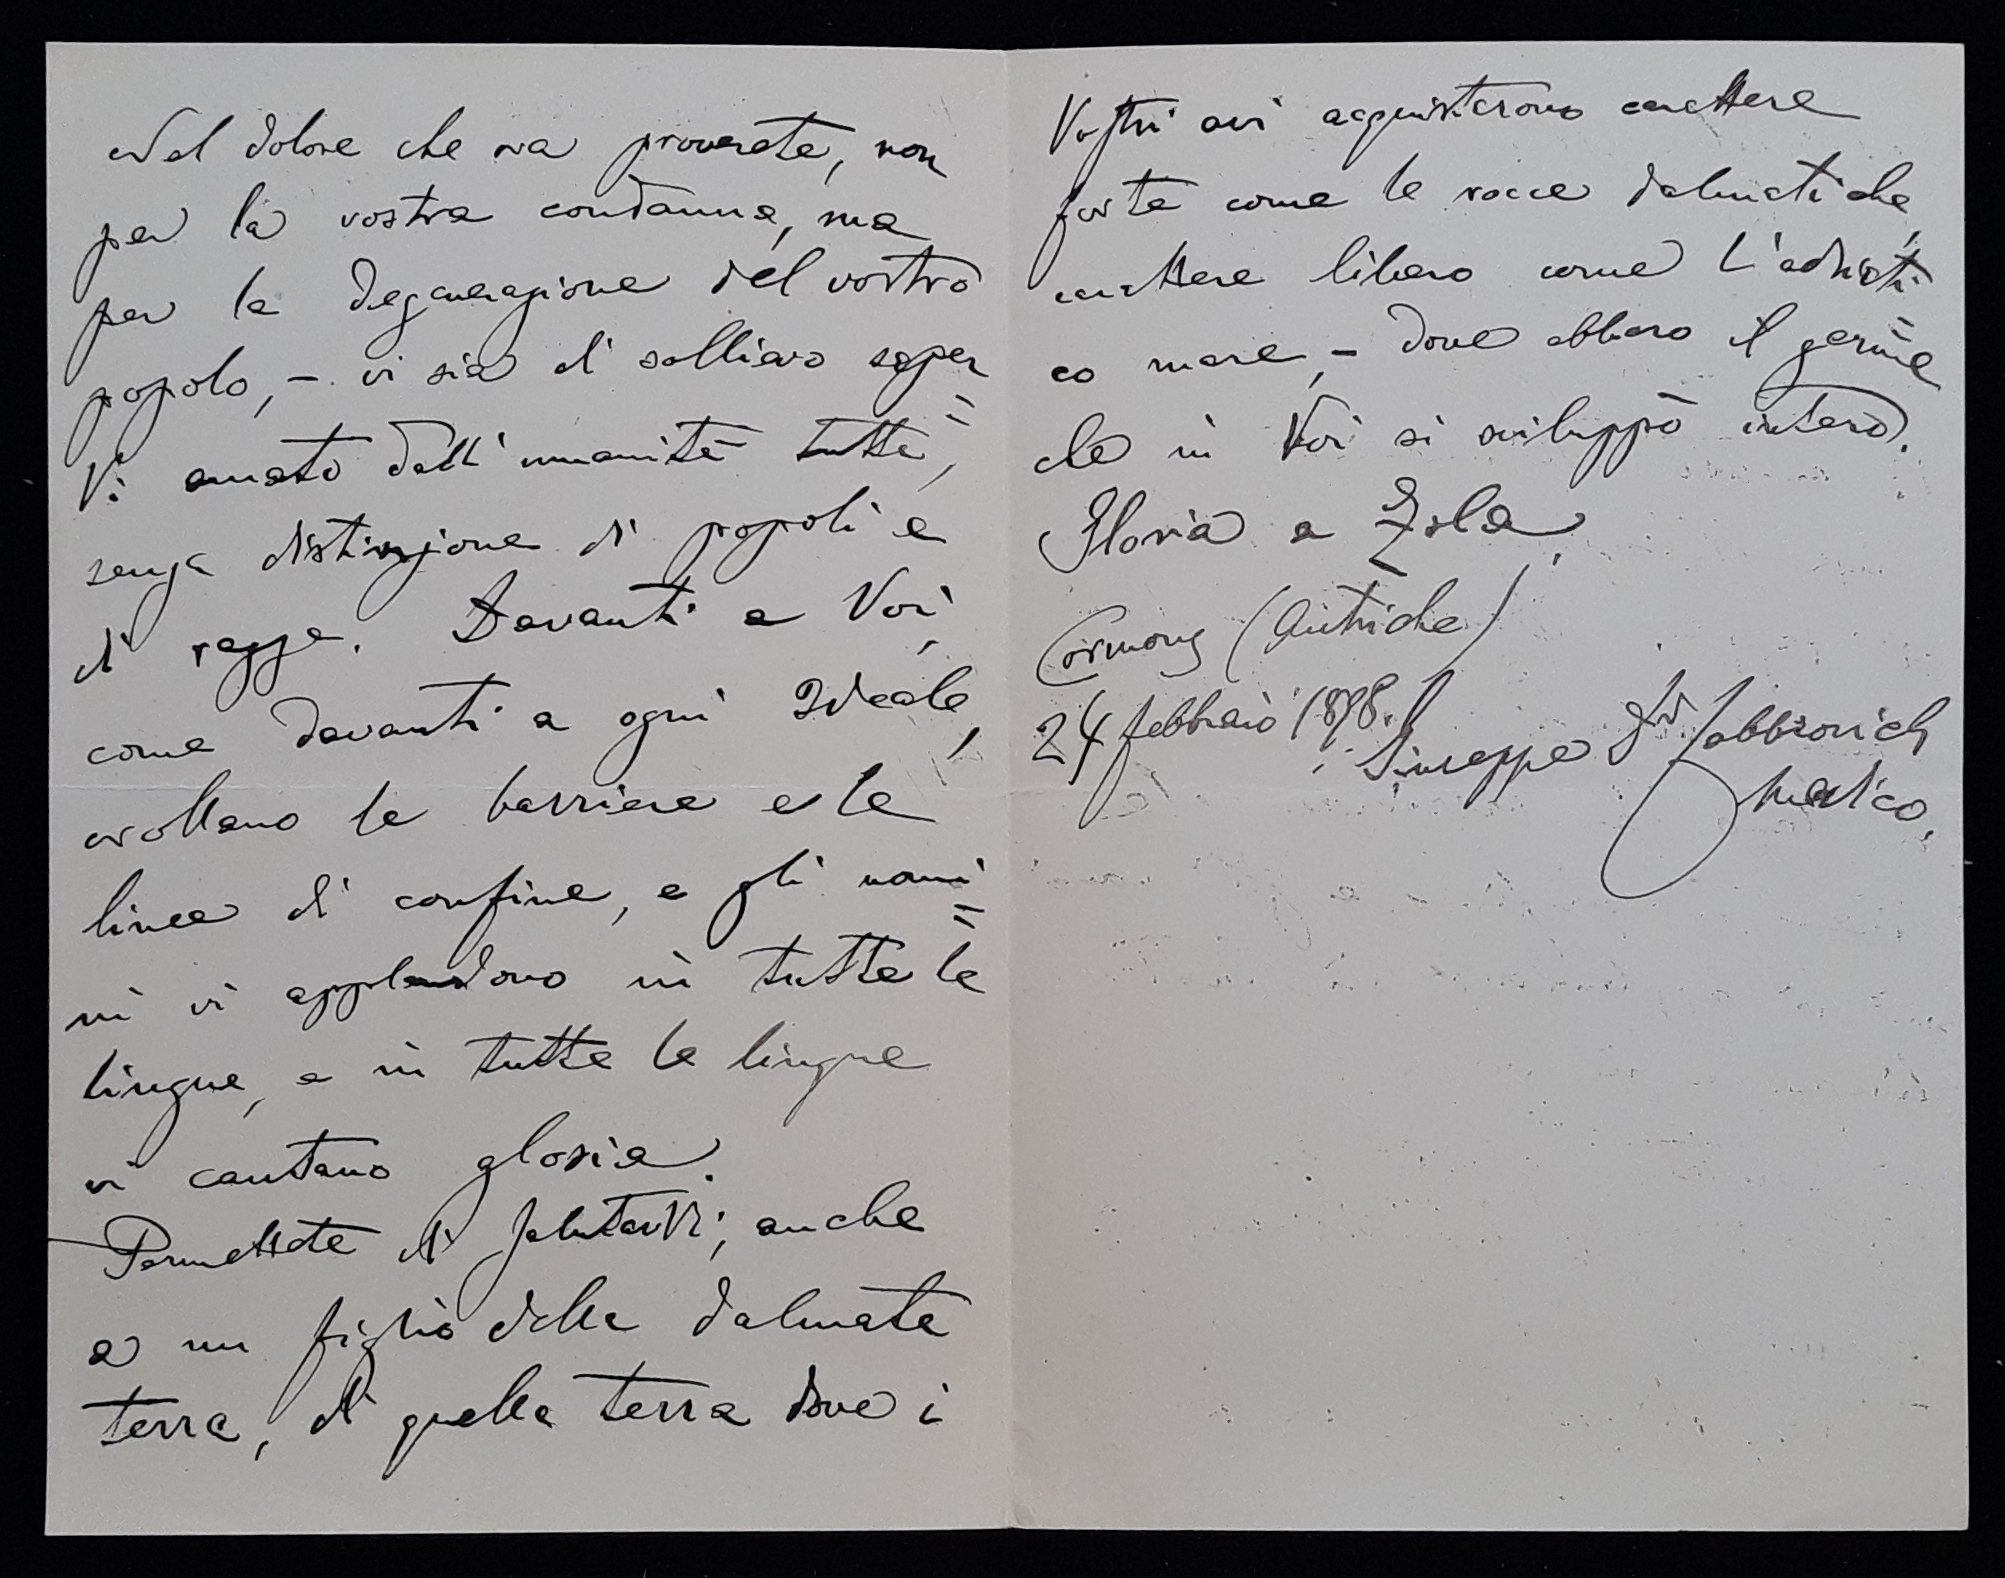 Nel dolore che ora proverete, non
per la vostra condanna, ma
per la degenerazione del vostro
popolo, – vi sia di sollievo saper=
Vi amato dall'umanità tutta,
senza distinzione di popoli e
di razza. Davanti a Voi,
come davanti a ogni Ideale,
crollano le barriere e le
linee di confine, e gli uomi=
ni vi applaudono in tutte le
lingue, e in tutte le lingue
vi cantano gloria.
Permettete di salutarVi, anche
a un figlio della dalmata
terra, di quella terra dove i
Vostri avi acquistarono carattere
forte come le rocce dalmatiche,
carattere libero come l'adriati=
co mare, – dove ebbero il germe
che in Voi si sviluppò intero.
Gloria a Zola.
Cormons (Autriche)
24 febbraio 1898.
Giuseppe Dr Fabbrovich
medico.